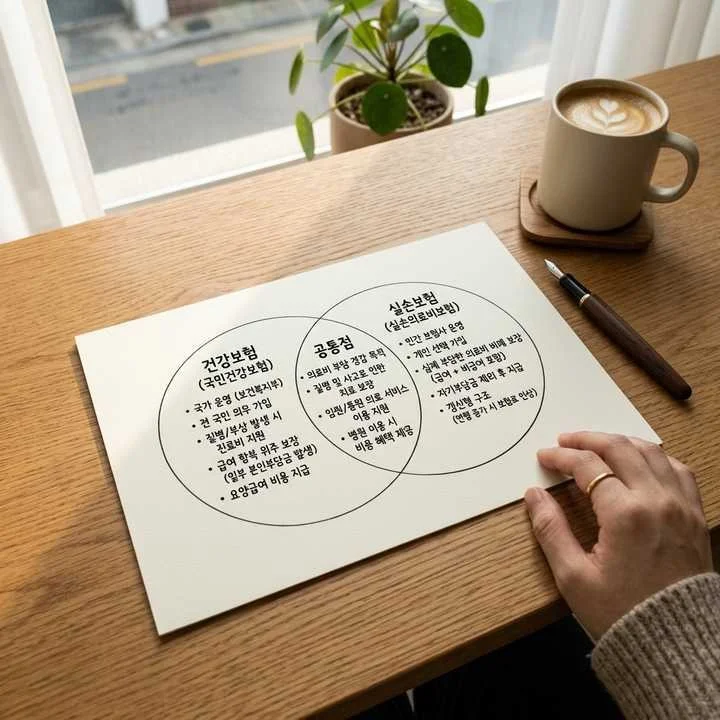 건강보험
(국민건강보험)
• 국가 운영 (보건복지부)
• 전 국민 의무 가입
• 질병/부상 발생 시
진료비 지원
• 급여 항목 위주 보장
(일부 본인부담금 발생)
• 요양급여 비용 지급
공통점
• 의료비 부담 경감 목적
• 질병 및 사고로 인한
치료 보장
• 입원/통원 의료 서비스
이용 지원
• 병원 이용 시
비용 혜택 제공
실손보험
(실손의료비보험)
• 민간 보험사 운영
• 개인 선택 가입
• 실제 부담한 의료비 비례 보장
(급여 + 비급여 포함)
• 자기부담금 제외 후 지급
• 갱신형 구조
(연령 증가 시 보험료 인상)